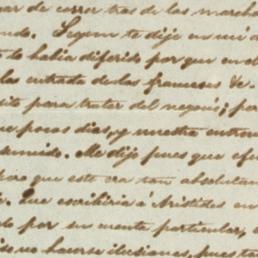 de correr tras de las marcha
Segun te dije en mi
lo habia diferido por que en el
las entrada de las francesas &c.
para tratar del negocio; po
pocos dias, y nuestra entre
sumido. Me dijo pues que
pero que esto era tan absolutam
que escribiria á Aristides en
do por su cuenta particular,
no hacerse ilusiones, pues ta